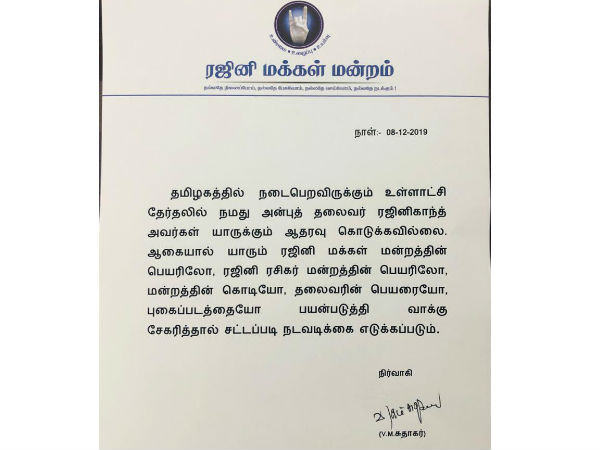 உண்மை • உழைப்பு • உயர்வு
ரஜினி மக்கள் மன்றம்
நல்லதே நினைப்போம், நல்லதே பேசுவோம், நல்லதே செய்வோம், நல்லதே நடக்கும் !
நாள்:- 08-12-2019
தமிழகத்தில் நடைபெறவிருக்கும் உள்ளாட்சி
தேர்தலில் நமது அன்புத் தலைவர் ரஜினிகாந்த்
அவர்கள் யாருக்கும் ஆதரவு கொடுக்கவில்லை.
ஆகையால் யாரும் ரஜினி மக்கள் மன்றத்தின்
பெயரிலோ, ரஜினி ரசிகர் மன்றத்தின் பெயரிலோ,
மன்றத்தின் கொடியோ, தலைவரின் பெயரையோ,
புகைப்படத்தையோ பயன்படுத்தி வாக்கு
சேகரித்தால் சட்டப்படி நடவடிக்கை எடுக்கப்படும்.
நிர்வாகி
(V.M.சுதாகர்)